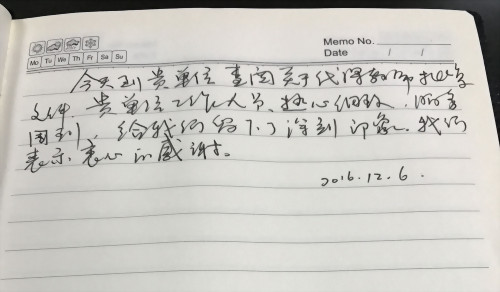 Memo No.
Mo Tu We Th Fr Sa Su
Date / /
今天到贵单位查阅关于代课教师
文件,贵单位工作人员,热心细致,服务
周到,给我们留下了深刻印象,我们
表示衷心的感谢。
2016.12.6.